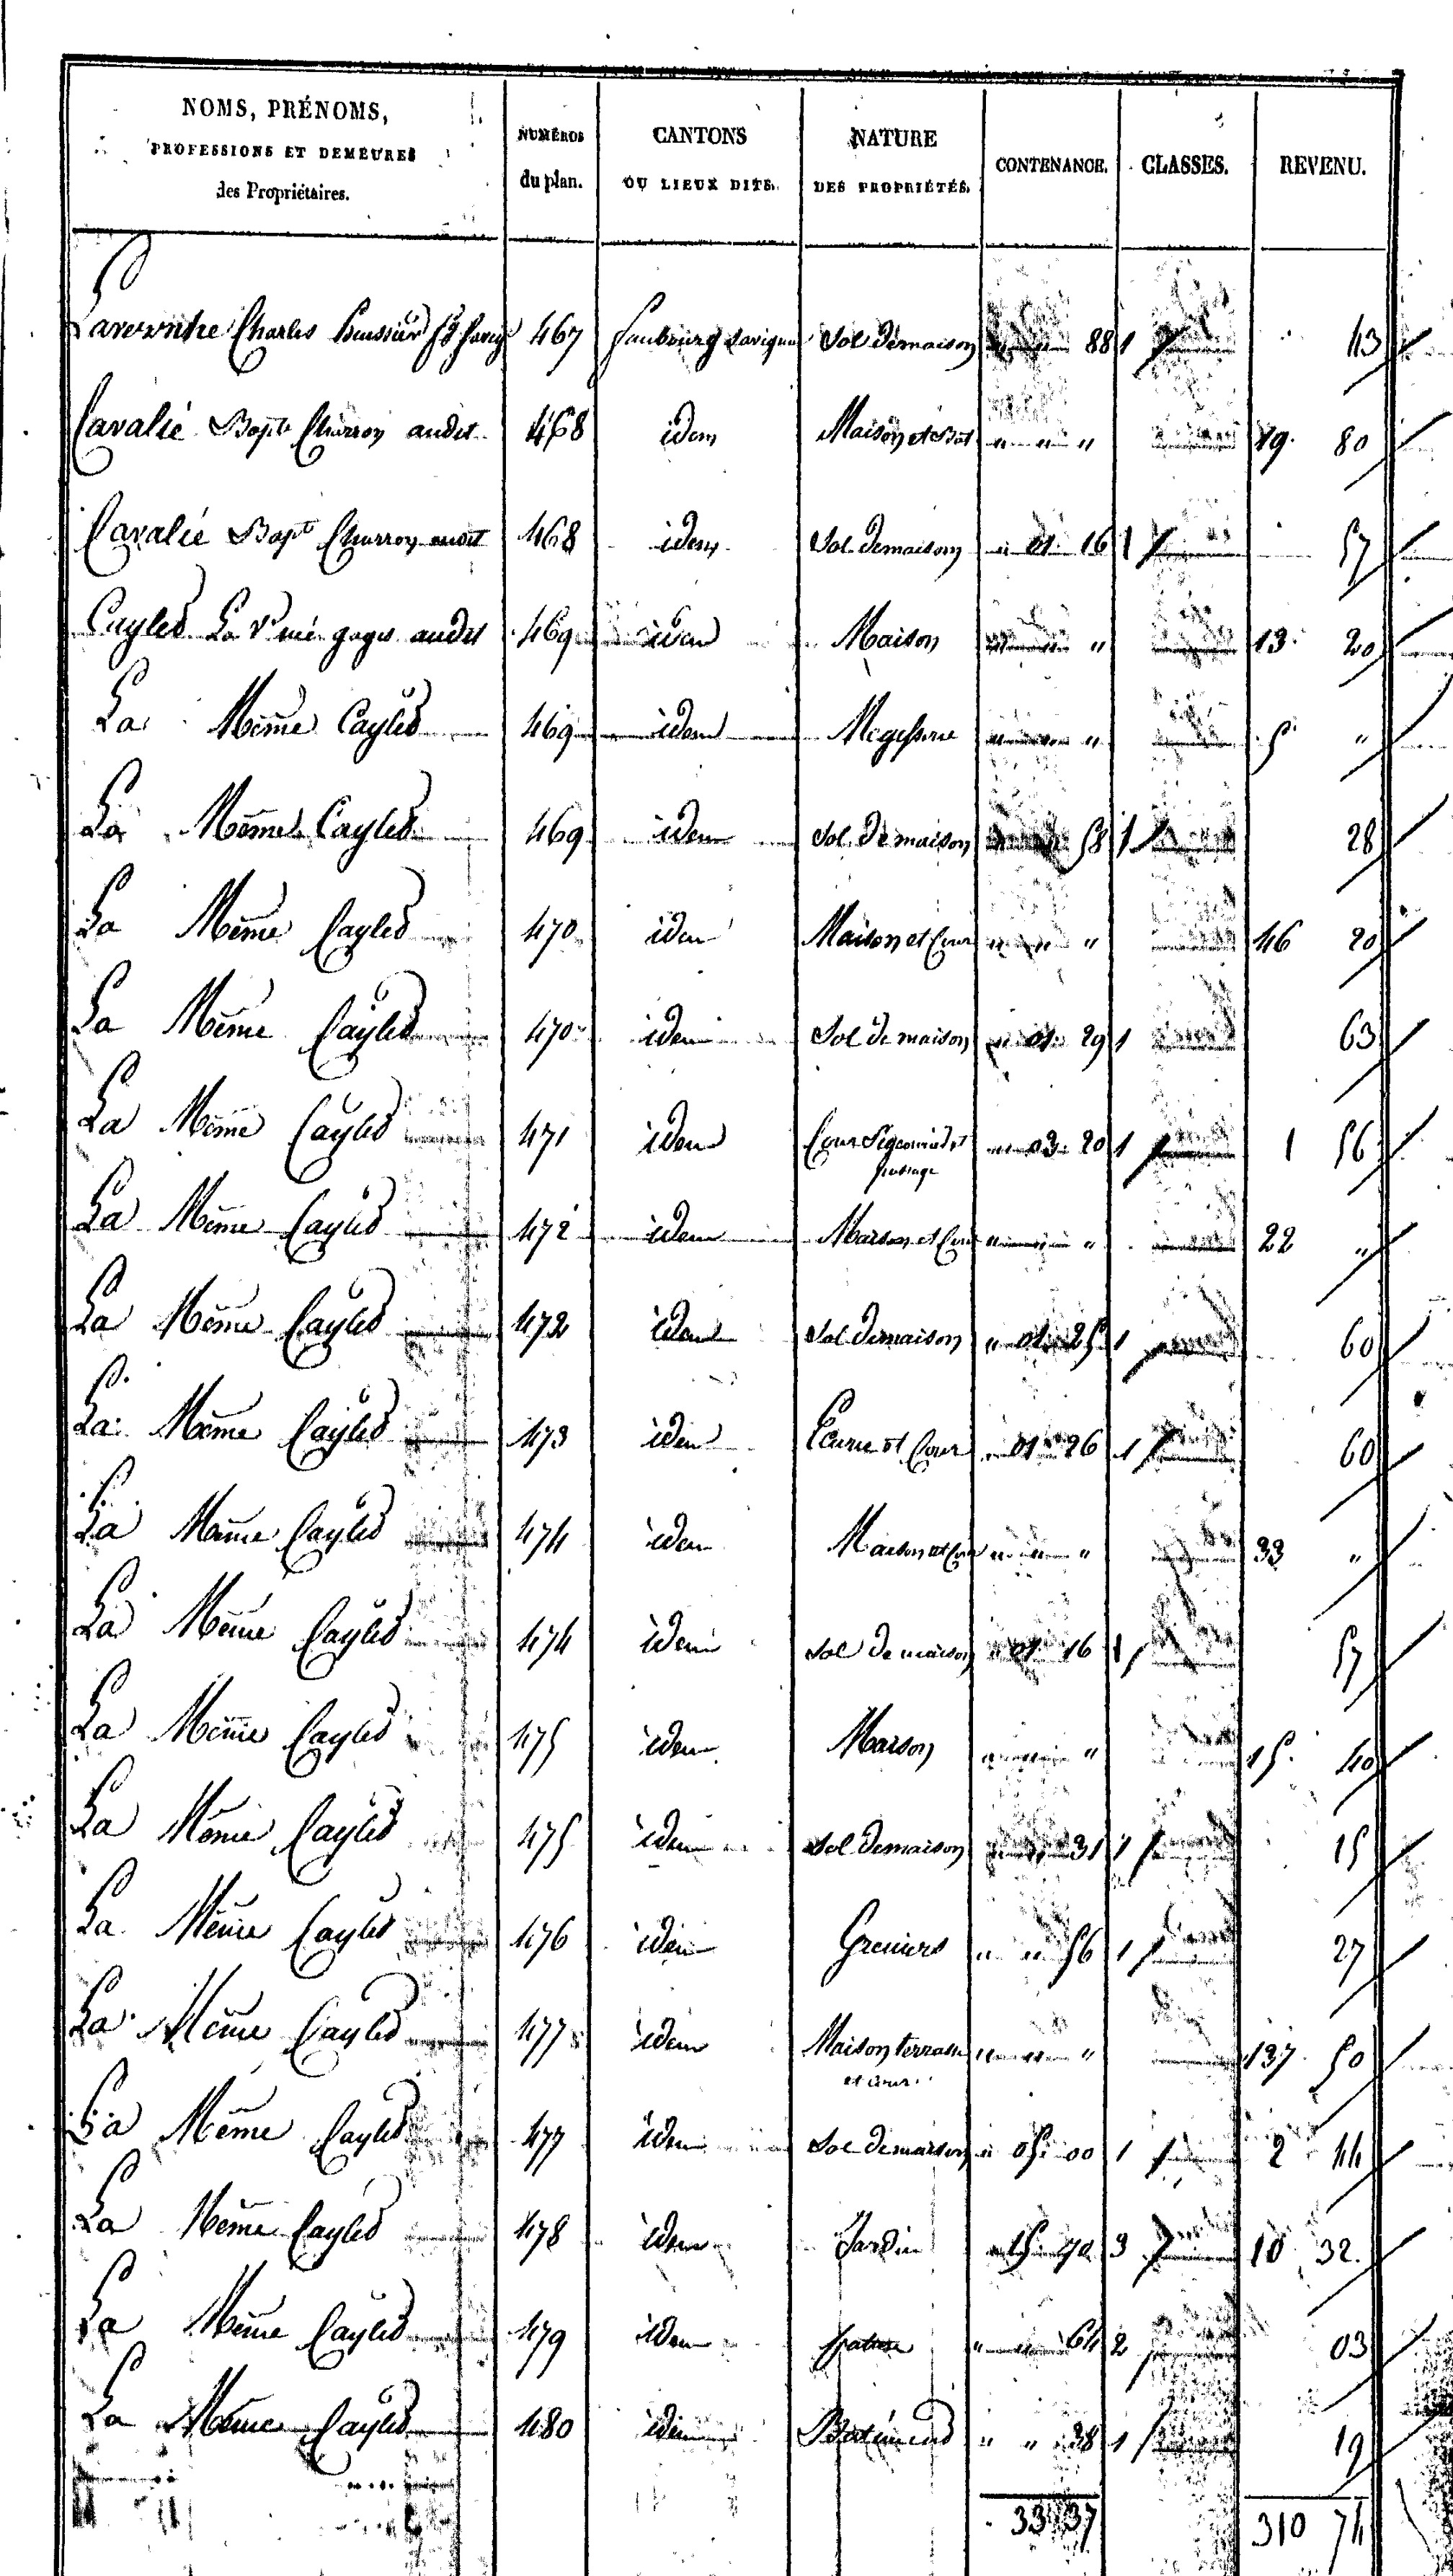 NOMS, PRÉNOMS, PROFESSIONS ET DEMEURES des Propriétaires. NUMÉROS du plan. CANTONS OU LIEUX DITS. NATURE DES PROPRIÉTÉS. CONTENANCE. CLASSES. REVENU.
Charles 467 faubourg Sol de maison " " 88 1 43
Cavalié Bapte Charron audit 468 idem Maison et Bat " " " 19 80
Cavalié Bapt Charron audit 468 idem Sol de maison " 01 16 1 57
Cayles La Ve née audit 469 idem Maison " " " 13 20
La Même Cayles 469 idem Megisserie " " " 5 "
La Même Cayles 469 idem Sol de maison " " 58 1 28
La Même Cayles 470 idem Maison et Cour " " " 46 20
La Même Cayles 470 idem Sol de maison " 01 29 1 63
La Même Cayles 471 idem Cour et passage " 03 20 1 1 56
La Même Cayles 472 idem Maison et Cour " " " 22 "
La Même Cayles 472 idem Sol de maison " 01 25 1 60
La Même Cayles 473 idem Ecurie et Cour " 01 26 1 60
La Même Cayles 474 idem Maison et Cour " " " 33 "
La Même Cayles 474 idem Sol de maison " 01 16 1 57
La Même Cayles 475 idem Maison " " " 15 40
La Même Cayles 475 idem Sol de maison " " 31 1 15
La Même Cayles 476 idem Greniers " " 56 1 27
La Même Cayles 477 idem Maison terrasse " " " 137 50
et cour
La Même Cayles 477 idem Sol de maison " 05 00 1 2 44
La Même Cayles 478 idem Jardin " 15 70 3 10 32
La Même Cayles 479 idem pature " " 64 2 03
La Même Cayles 480 idem Batiment " " 38 1 19
33 37 310 74